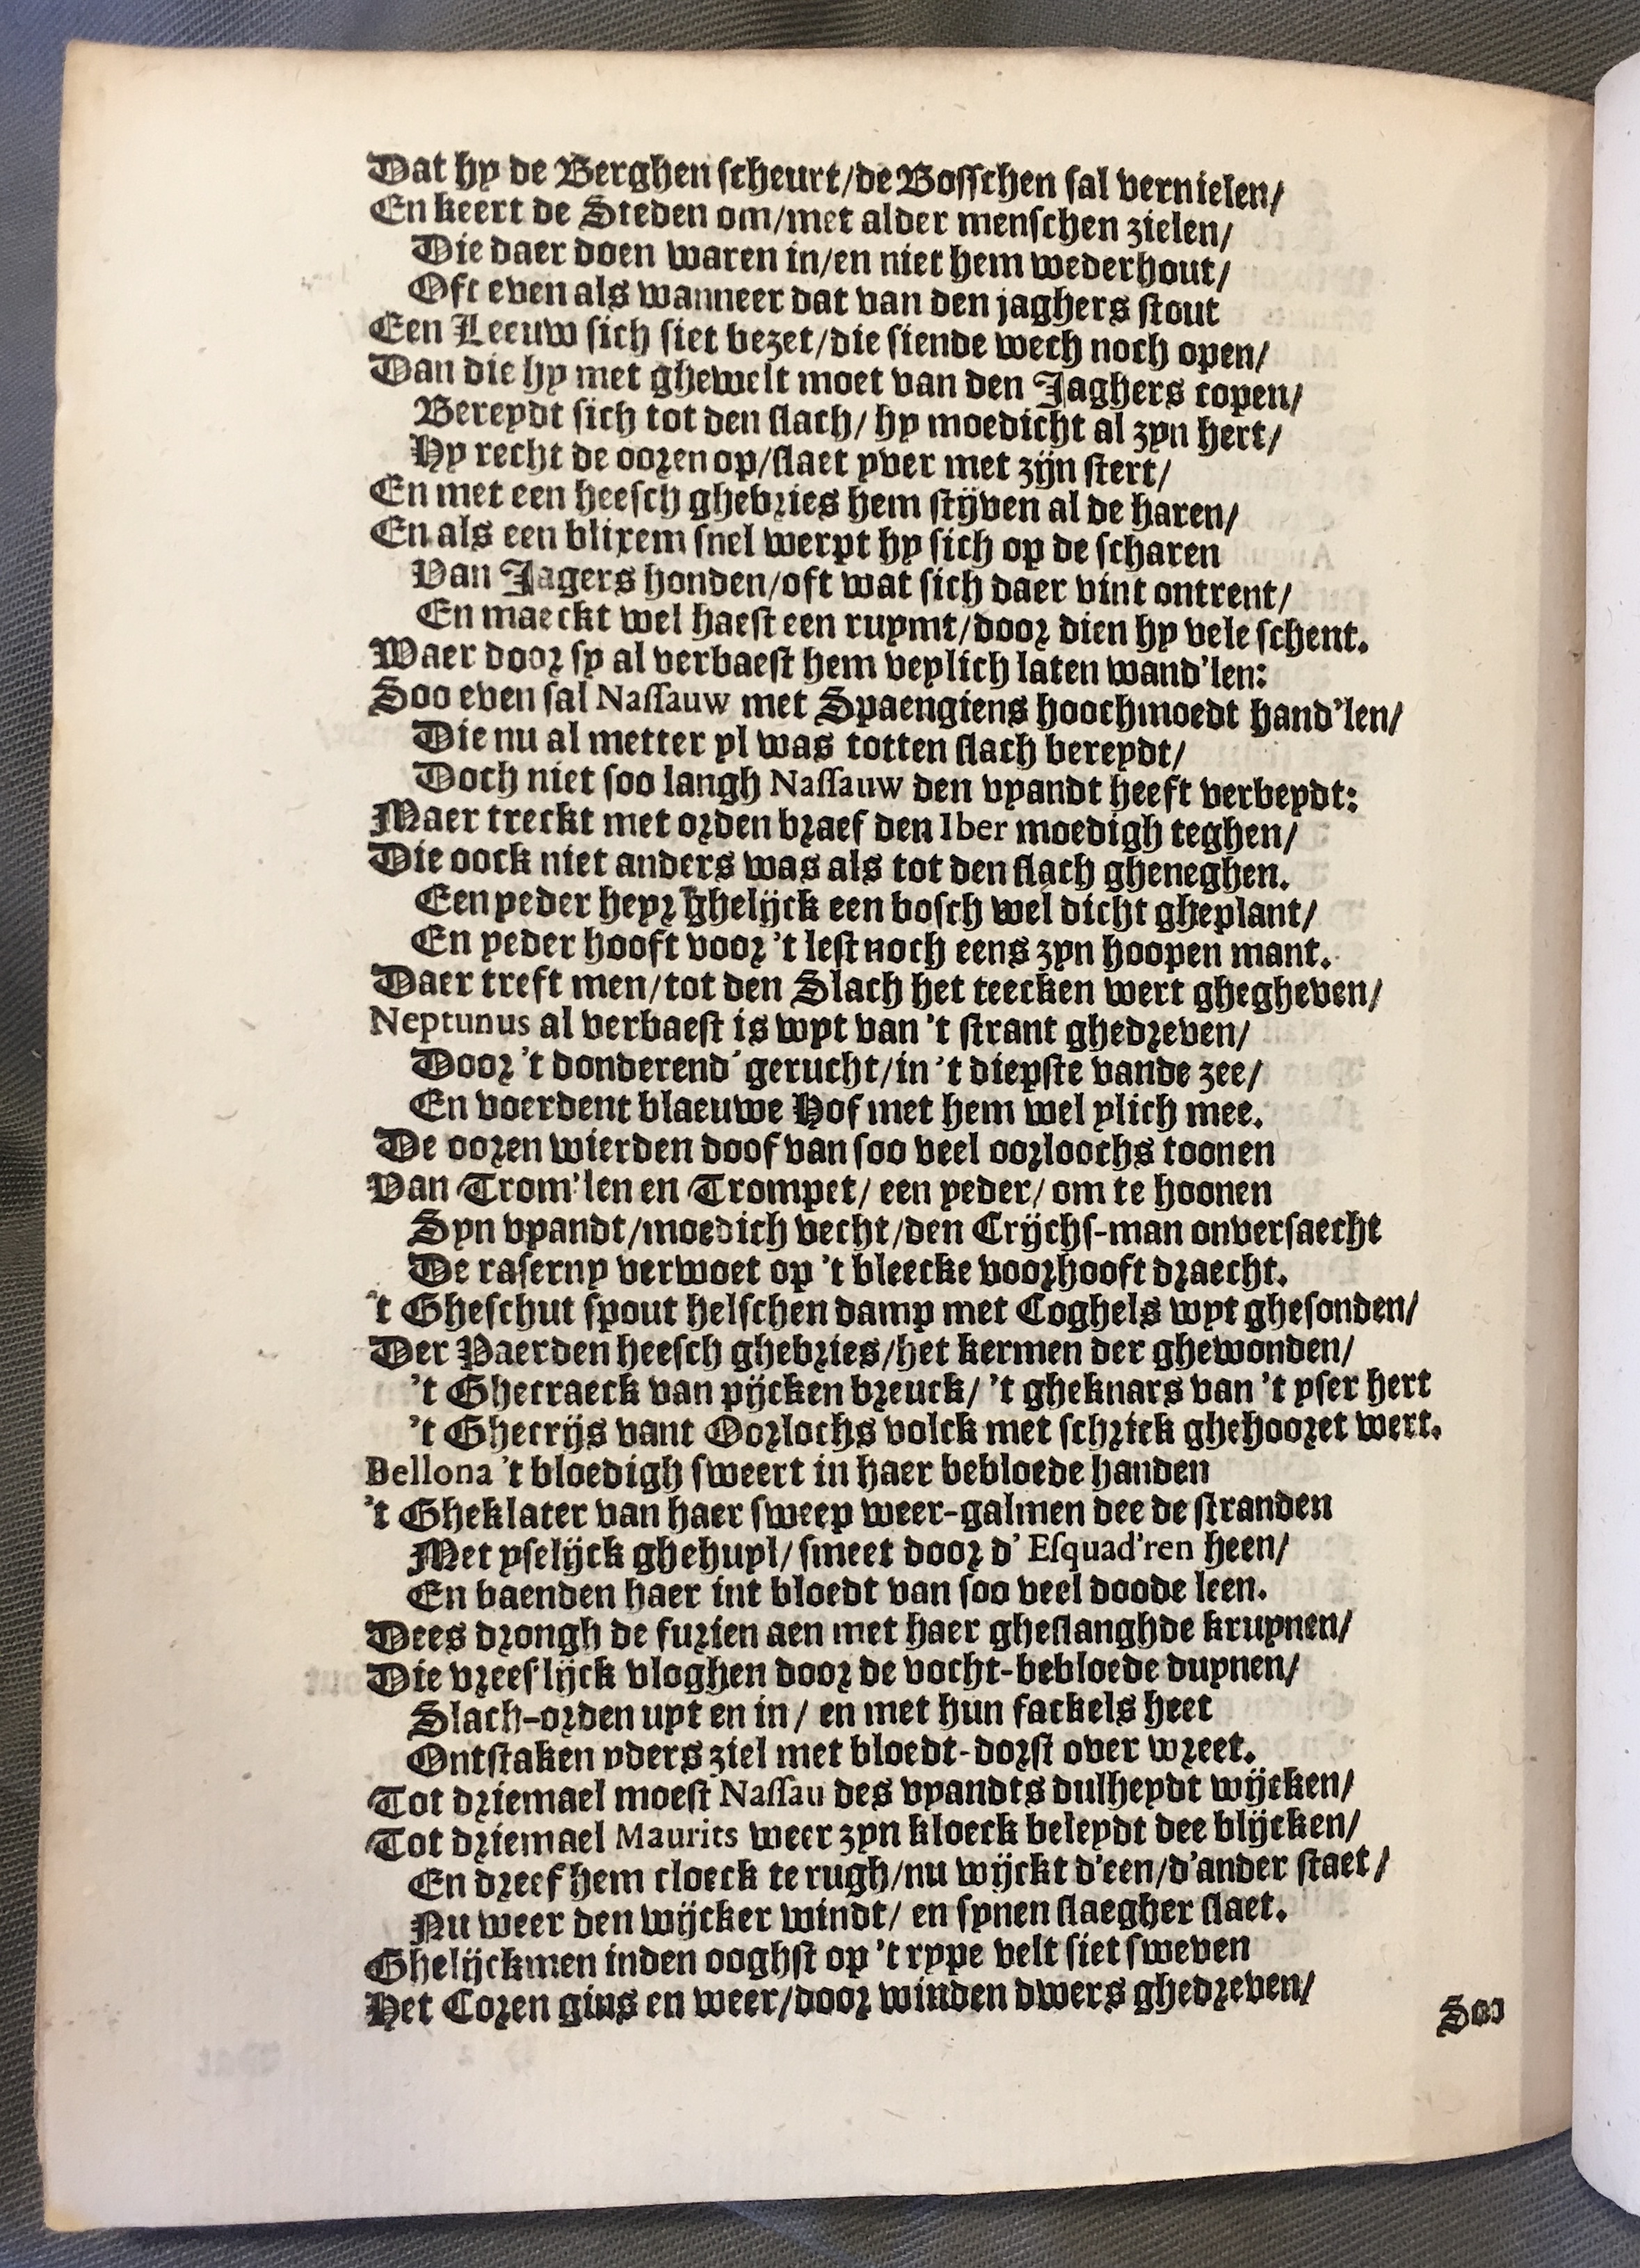 Dat hy de Berghen scheurt/de Bosschen sal vernielen/
En keert de Steden om/met alder menschen zielen/
Die daer doen waren in/en niet hem wederhout/
Oft even als wanneer dat van den jaghers stout
Een Leeuw sich siet bezet/die siende wech noch open/
Dan die hy met ghewelt moet van den Jaghers copen/
Bereydt sich tot den slach/ hy moedicht al zyn hert/
Hy recht de ooren op/slaet yver met zijn stert/
En met een heesch ghebries hem stijven al de haren/
En als een blixem snel werpt hy sich op de scharen
Van Jagers honden/oft wat sich daer vint ontrent/
En maeckt wel haest een ruymt/door dien hy vele schent.
Waer door sy al verbaest hem veylich laten wand'len:
Soo even sal Nassauw met Spaengiens hoochmoedt hand'len/
Die nu al metter yl was totten slach bereydt/
Doch niet soo langh Nassauw den vyandt heeft verbeydt:
Maer treckt met orden braef den Iber moedigh teghen/
Die oock niet anders was als tot den slach gheneghen.
Een yeder heyr ghelijck een bosch wel dicht gheplant/
En yeder hooft voor 't lest noch eens zyn hoopen mant.
Daer treft men/tot den Slach het teecken wert ghegheven/
Neptunus al verbaest is wyt van 't strant ghedreven/
Door 't donderend' gerucht/in 't diepste vande zee/
En voerdent blaeuwe Hof met hem wel ylich mee.
De ooren wierden doof van soo veel oorloochs toonen
Van Trom'len en Trompet/ een yeder/ om te hoonen
Syn vyandt/moedich vecht/den Crijchs-man onversaecht
De raserny verwoet op 't bleecke voorhooft draecht.
't Gheschut spout helschen damp met Coghels wyt ghesonden/
Der Paerden heesch ghebries/het kermen der ghewonden/
't Ghecraeck van pijcken breuck/ 't gheknars van 't yser hert
't Ghecrijs vant Oorlochs volck met schrick ghehooret wert.
Bellona 't bloedigh sweert in haer bebloede handen
't Gheklater van haer sweep weer-galmen dee de stranden
Met yselijck ghehuyl/ smeet door d' Esquad'ren heen/
En baenden haer int bloedt van soo veel doode leen.
Dees drongh de furien aen met haer gheslanghde kruynen/
Die vrees'lijck vloghen door de vocht-bebloede duynen/
Slach-orden uyt en in/ en met hun fackels heet
Ontstaken yders ziel met bloedt-dorst over wreet.
Tot driemael moest Nassau des vyandts dulheydt wijcken/
Tot driemael Maurits weer zyn kloeck beleydt dee blijcken/
En dreef hem cloeck te rugh/nu wijckt d'een/d'ander staet/
Nu weer den wijcker windt/ en synen slaegher slaet.
Ghelijckmen inden ooghst op 't rype velt siet sweven
Het Coren gins en weer/door winden dwers ghedreven/
Soo